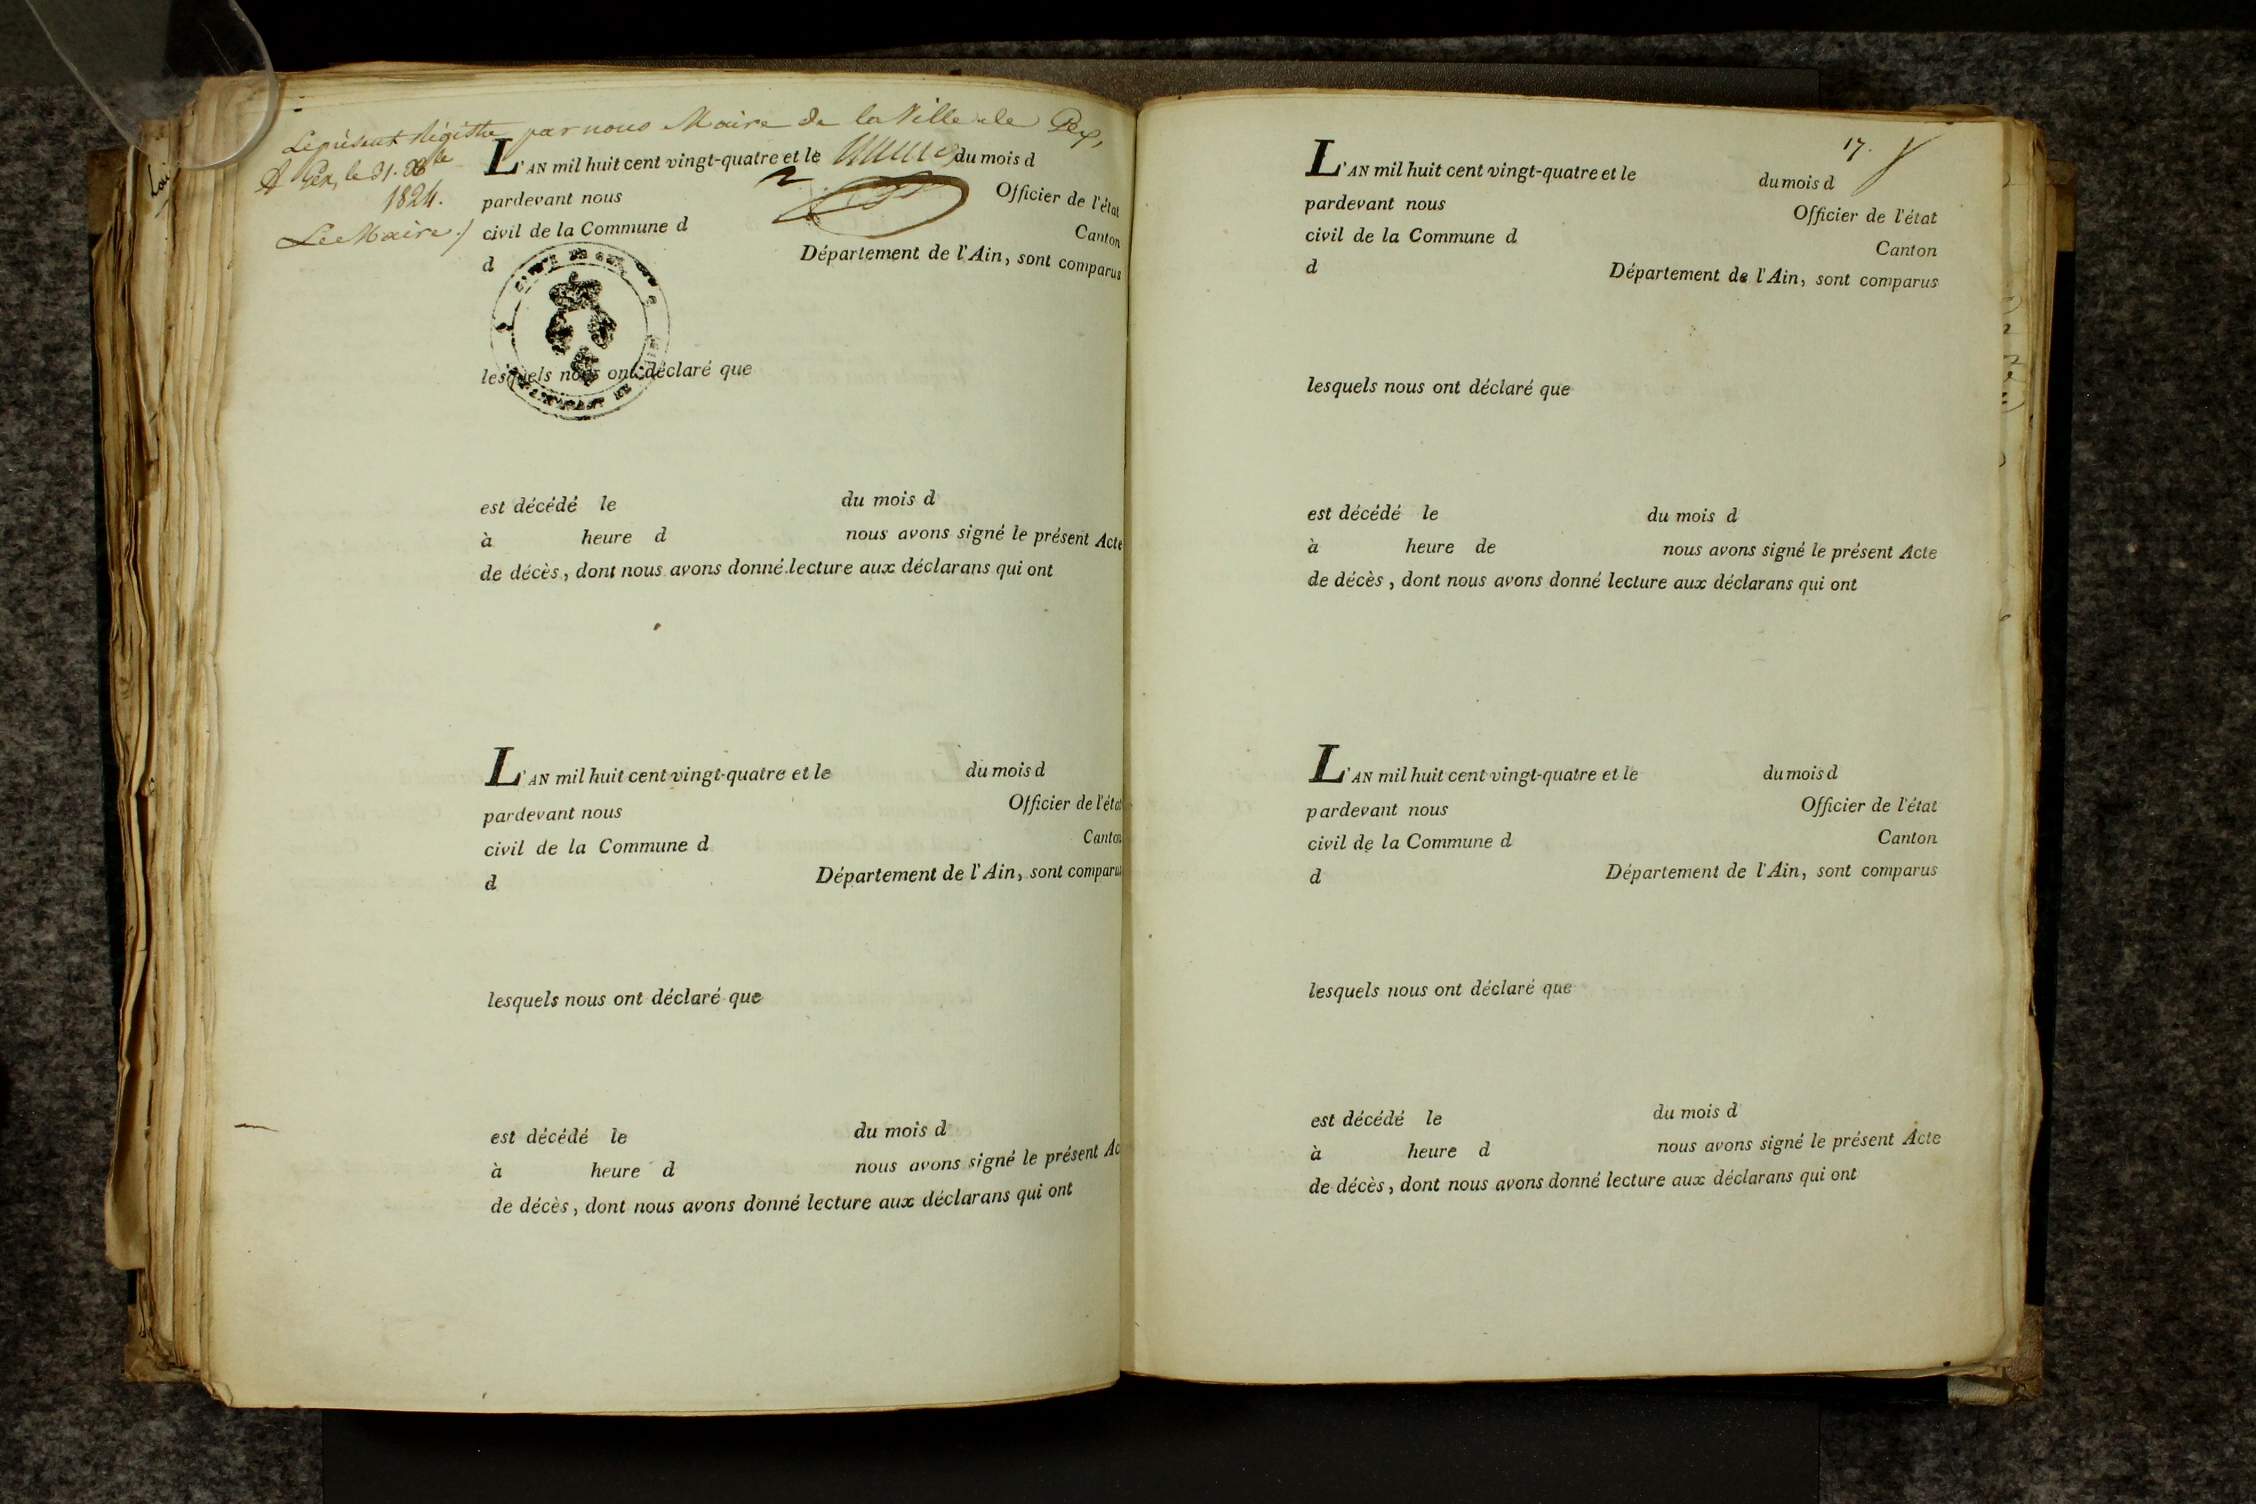 Le présent Régistre par nous Maire de la Ville de Gex,
A Gex, le 31. Xbre
1824.
Le Maire
L'AN mil huit cent vingt-quatre et le du mois d
pardevant nous Officier de l'état
civil de la Commune d Canton
d Département de l'Ain, sont comparus
lesquels nous ont déclaré que
est décédé le du mois d
à heure d nous avons signé le présent Acte
de décès, dont nous avons donné lecture aux déclarans qui ont
L'AN mil huit cent vingt-quatre et le du mois d
pardevant nous Officier de l'état
civil de la Commune d Canton
d Département de l'Ain, sont comparus
lesquels nous ont déclaré que
est décédé le du mois d
à heure d nous avons signé le présent Ac
de décès, dont nous avons donné lecture aux déclarans qui ont
17.
L'AN mil huit cent vingt-quatre et le du mois d
pardevant nous Officier de l'état
civil de la Commune d Canton
d Département de l'Ain, sont comparus
lesquels nous ont déclaré que
est décédé le du mois d
à heure de nous avons signé le présent Acte
de décès, dont nous avons donné lecture aux déclarans qui ont
L'AN mil huit cent vingt-quatre et le du mois d
pardevant nous Officier de l'état
civil de la Commune d Canton
d Département de l'Ain, sont comparus
lesquels nous ont déclaré que
est décédé le du mois d
à heure d nous avons signé le présent Acte
de décès, dont nous avons donné lecture aux déclarans qui ont